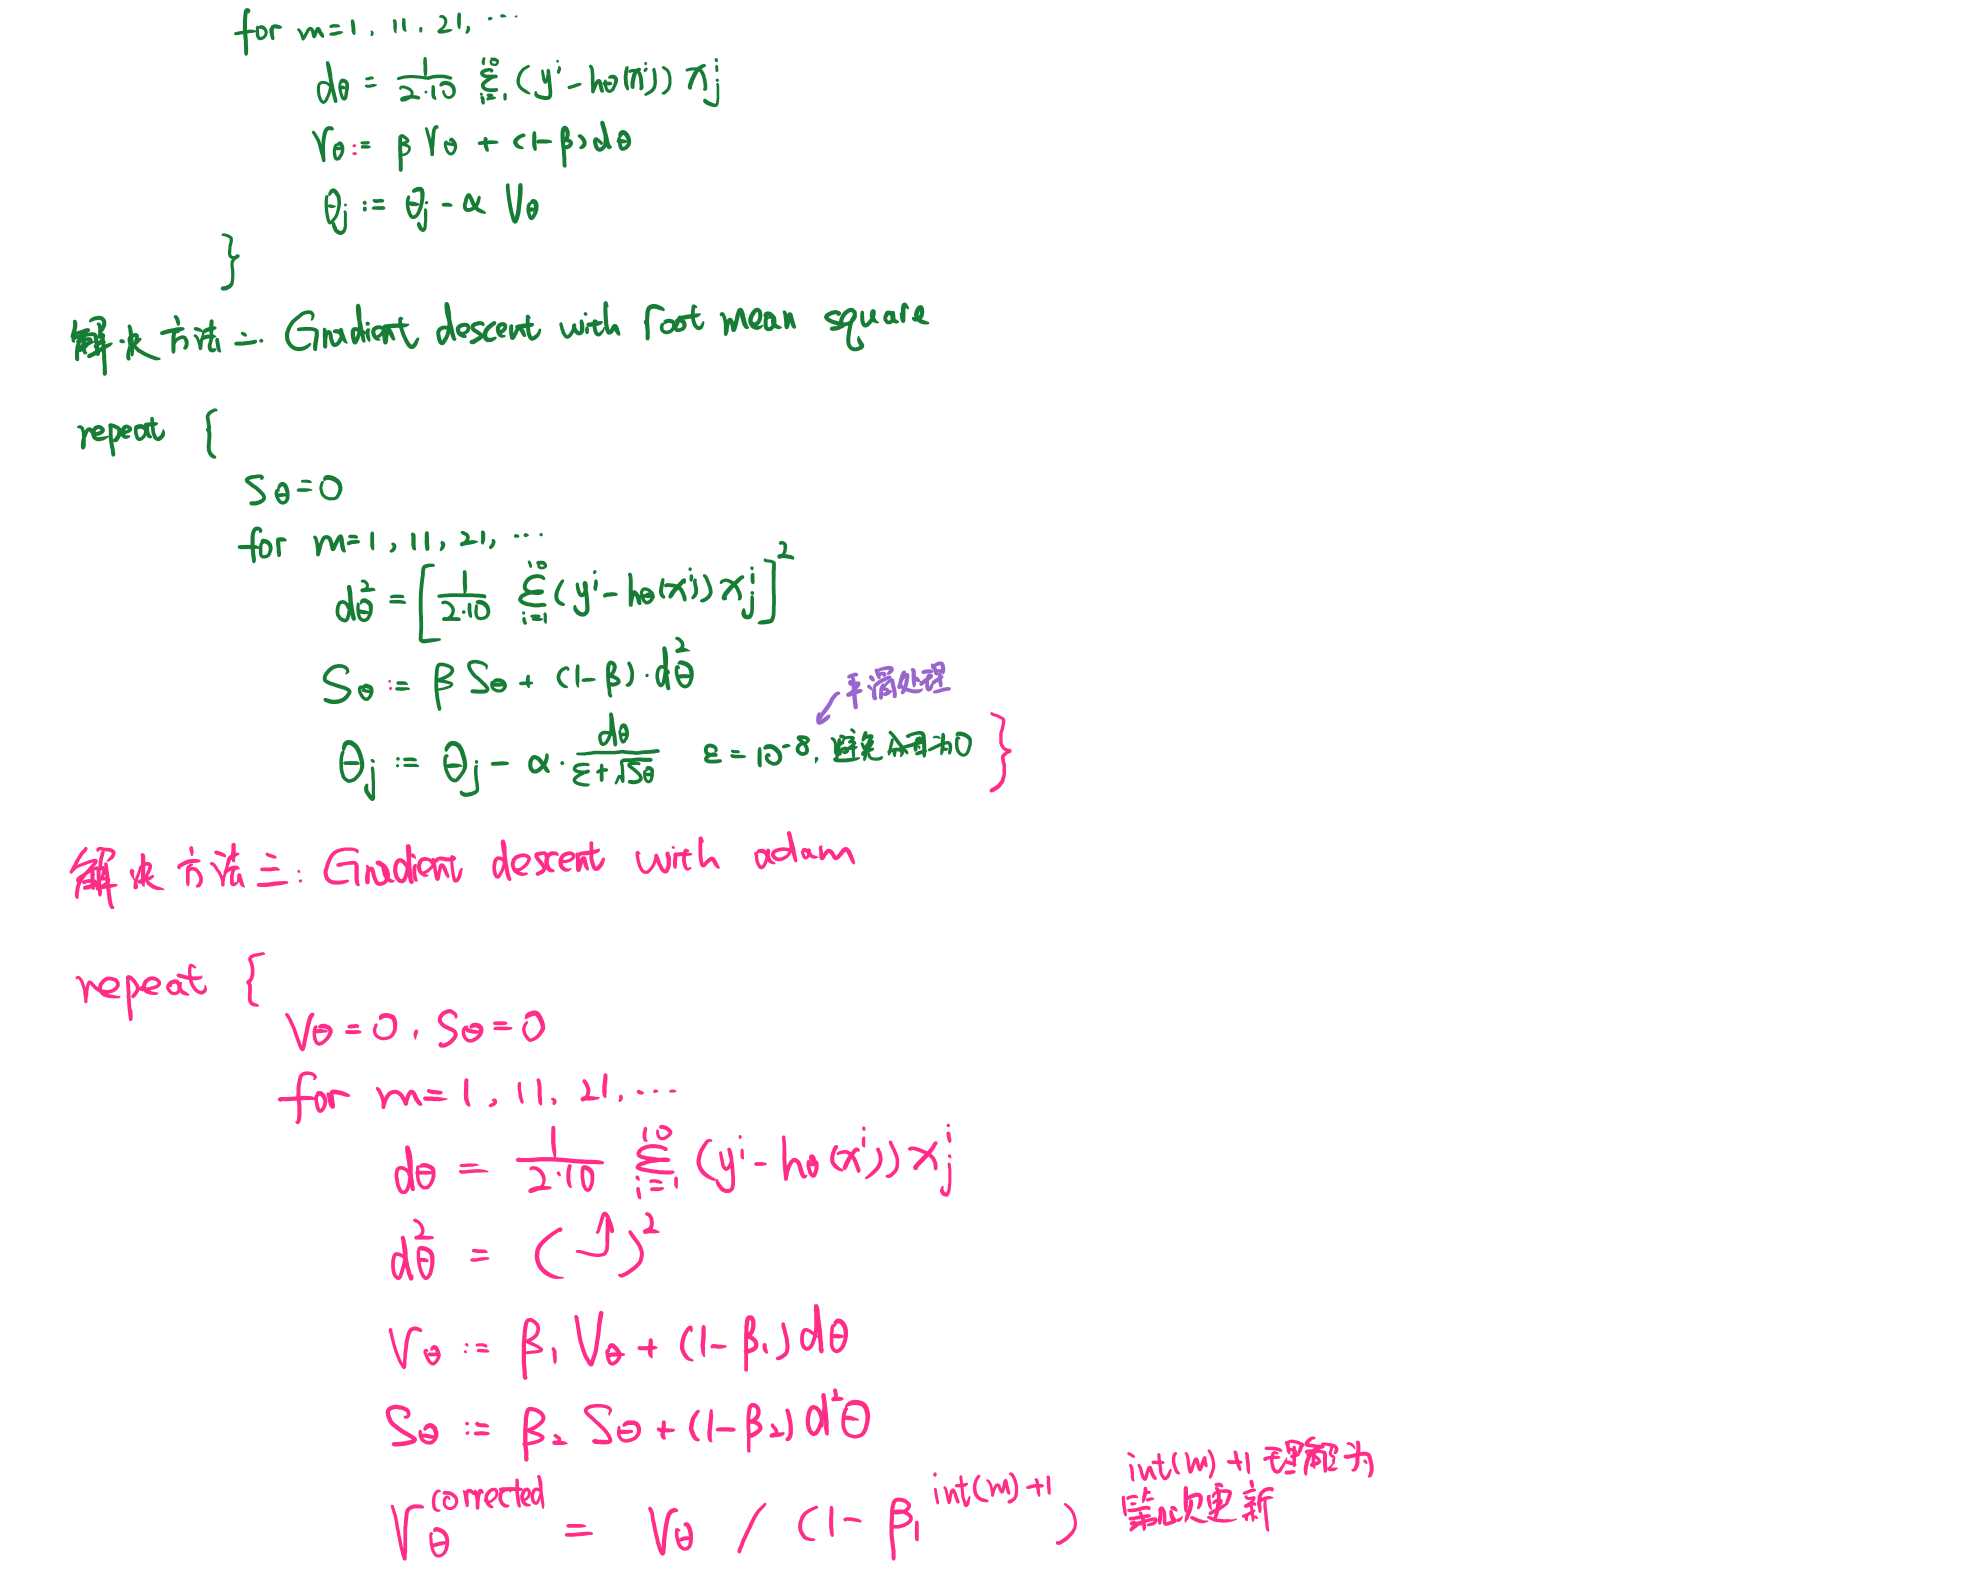 for m=1, 11, 21, ...
dθ = 1/(2·10) Σ_{i=1}^{10} (y^i - hθ(x^i)) x_j^i
Vθ := β Vθ + (1-β)dθ
θj := θj - α Vθ
}
解决方法二: Gradient descent with root mean square
repeat {
Sθ=0
for m=1, 11, 21, ...
d²θ = [1/(2·10) Σ_{i=1}^{10} (y^i - hθ(x^i)) x_j^i]²
Sθ := β Sθ + (1-β)·d²θ
平滑处理
θj := θj - α · dθ/(ε+√Sθ) ε=10^-8, 避免分母为0 }
解决方法三: Gradient descent with adam
repeat {
Vθ=0, Sθ=0
for m=1, 11, 21, ...
dθ = 1/(2·10) Σ_{i=1}^{10} (y^i - hθ(x^i)) x_j^i
d²θ = ( ⤴ )²
Vθ := β₁ Vθ + (1-β₁)dθ
Sθ := β₂ Sθ + (1-β₂)d²θ
Vθ^corrected = Vθ / (1 - β₁^{int(m)+1})
int(m)+1 理解为
第几次更新